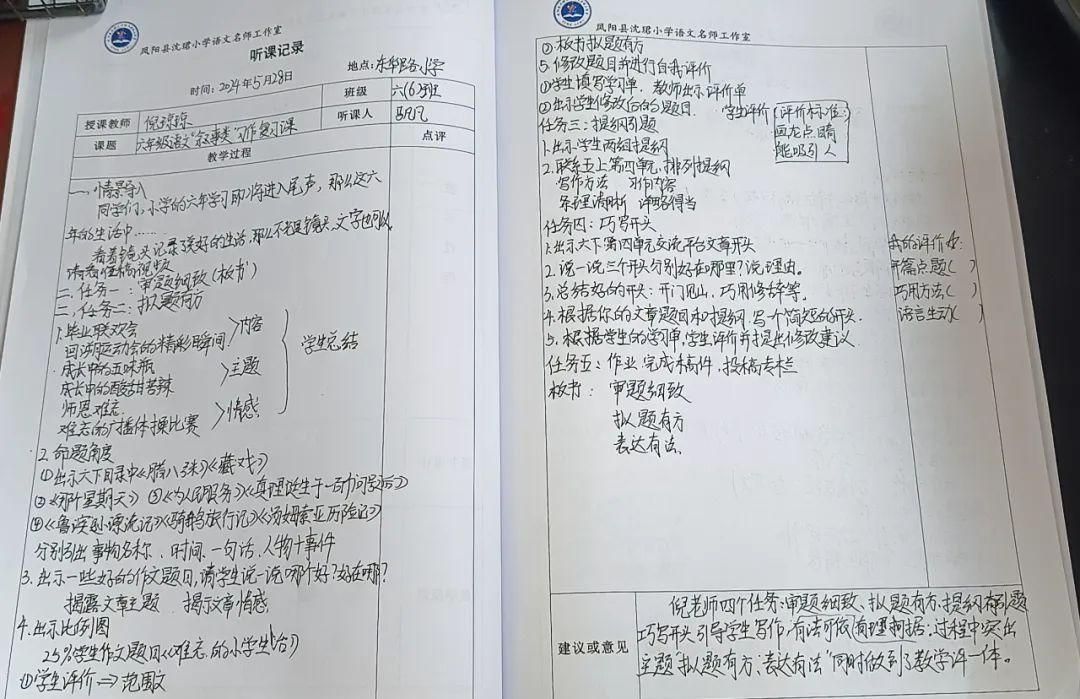 凤阳县沈珺小学语文名师工作室
听课记录
时间：2024年5月28日
地点：东华路小学
授课教师 倪琼琼 班级 六(6)班
课题 六年级语文“叙事类”习作复习课 听课人
教学过程 点评
一、情景导入
同学们，小学的六年学习即将进入尾声，那么这六
年的生活中……
看着镜头记录了美好的生活，那么不光是镜头，文字也可以
请看征稿视频
二、任务一：审题细致（板书）
三、任务二：拟题有方
1.毕业联欢会
回顾运动会的精彩瞬间 >内容
成长中的五味瓶
成长中的酸甜苦辣 >主题
师恩难忘
难忘的广播体操比赛 >情感
学生总结
2.命题角度
①出示六下目录中《腊八粥》《藏戏》
②《那个星期天》③《为人民服务》《真理诞生于一百个问号之后》
④《鲁滨逊漂流记》《骑鹅旅行记》《汤姆索亚历险记》
分别引出事物名称、时间、一句话、人物+事件
3.出示一些好的作文题目，请学生说一说哪个好？好在哪？
揭露文章主题 揭示文章情感
4.出示比例图
25%学生作文题目《难忘的小学生活》
①学生评价⇒范围大
凤阳县沈珺小学语文名师工作室
②板书拟题有方
5.修改题目并进行自我评价
①学生填写学习单，教师出示评价单
②出示学生修改后的题目 学生评价
评价标准：
画龙点睛
能吸引人
任务三：提纲引题
1.出示学生两组提纲
2.联系五上第四单元，排列提纲
写作方法 习作内容
条理清晰 详略得当
任务四：巧写开头
1.出示六下第四单元交流平台文章开头
2.说一说三个开头分别好在哪里？说理由。
3.总结好的开头：开门见山，巧用修辞等。
4.根据你的文章题目和提纲，写个简短的开头。
5.根据学生的学习单，学生评价并提出修改建议
我的评价
开篇点题（ ）
巧用方法（ ）
语言生动（ ）
任务五：作业，完成稿件，投稿专栏
板书： 审题细致
拟题有方
表达有法
建议或意见
倪老师四个任务：审题细致、拟题有方、提纲引题
巧写开头引导学生写作，有法可依有理可据；过程中突出
主题“拟题有方；表达有法”同时做到了教学评一体。